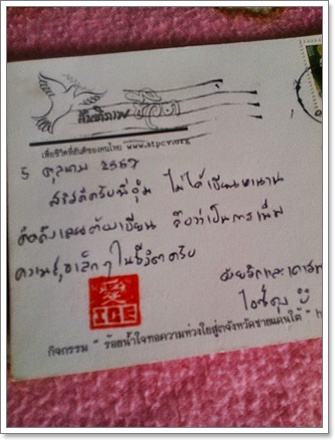 สันติภาพ
เพื่อชีวิตที่สันติของคนไทย www.stpcv.org
5 ตุลาคม 2557
สวัสดีครับพี่อุ้ม ไม่ได้เขียนมานาน
คิดถึงเลยต้องเขียน ถือว่าเป็นการเพิ่ม
ความสุขเล็กๆ ในชีวิตครับ
ด้วยรักและเคารพ
ไอซ์
愛
ICE
กิจกรรม " ร้อยน้ำใจทอความห่วงใยสู่ จังหวัดชายแดนใต้ "